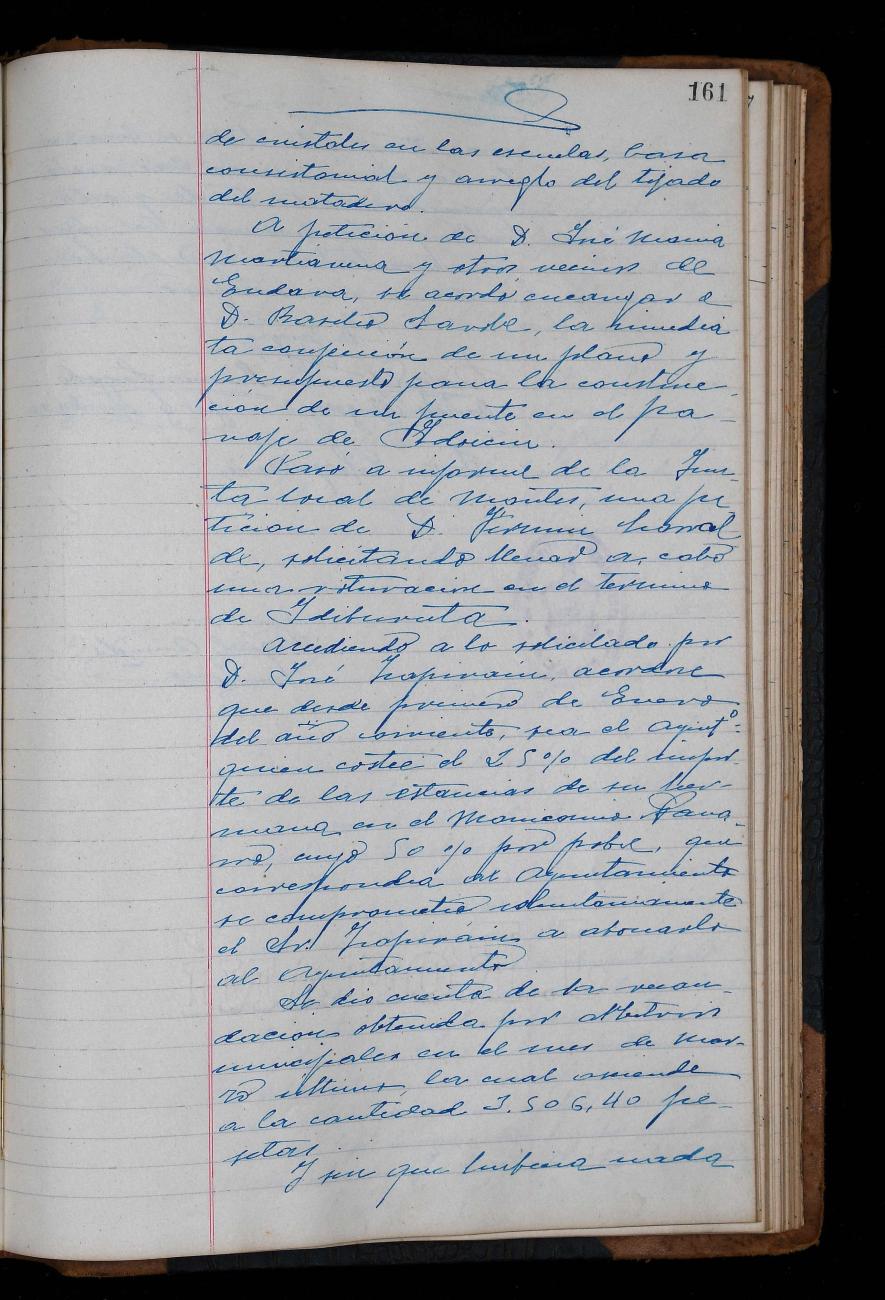 161
de cristales en las escuelas, casa
consistorial y arreglo del tejado
del matadero.
A petición de D. José Maria
Martiarena y otros vecinos de
Endara, se acordó encargar a
D. Basilio, la inmedia
ta confección de un plano y
presupuesto para la construc
ción de un puente en el pa-
raje de
Pasó a informe de la Jun-
ta local de Montes, una pe
tición de D. Fermin
de, solicitando llevar a cabo
una roturacion en el termino
de
Accediendo a lo solicitado por
D. José, acordose
que desde primero de Enero
del año corriente, sea el Ayuntº.
quien costee el 25% del impor-
te de las estancias de su her-
mana en el Manicomio Nava-
rro, cuyo 50 % por pobre, que
correspondia al Ayuntamiento
se comprometió voluntariamente
el Sr. a abonarlo
al Ayuntamiento
Se dio cuenta de la recau-
dacion obtenida por arbitrios
municipales en el mes de Mar-
zo ultimo, la cual asciende
a la cantidad 3.506,40 pe-
setas.
Y sin que hubiera nada